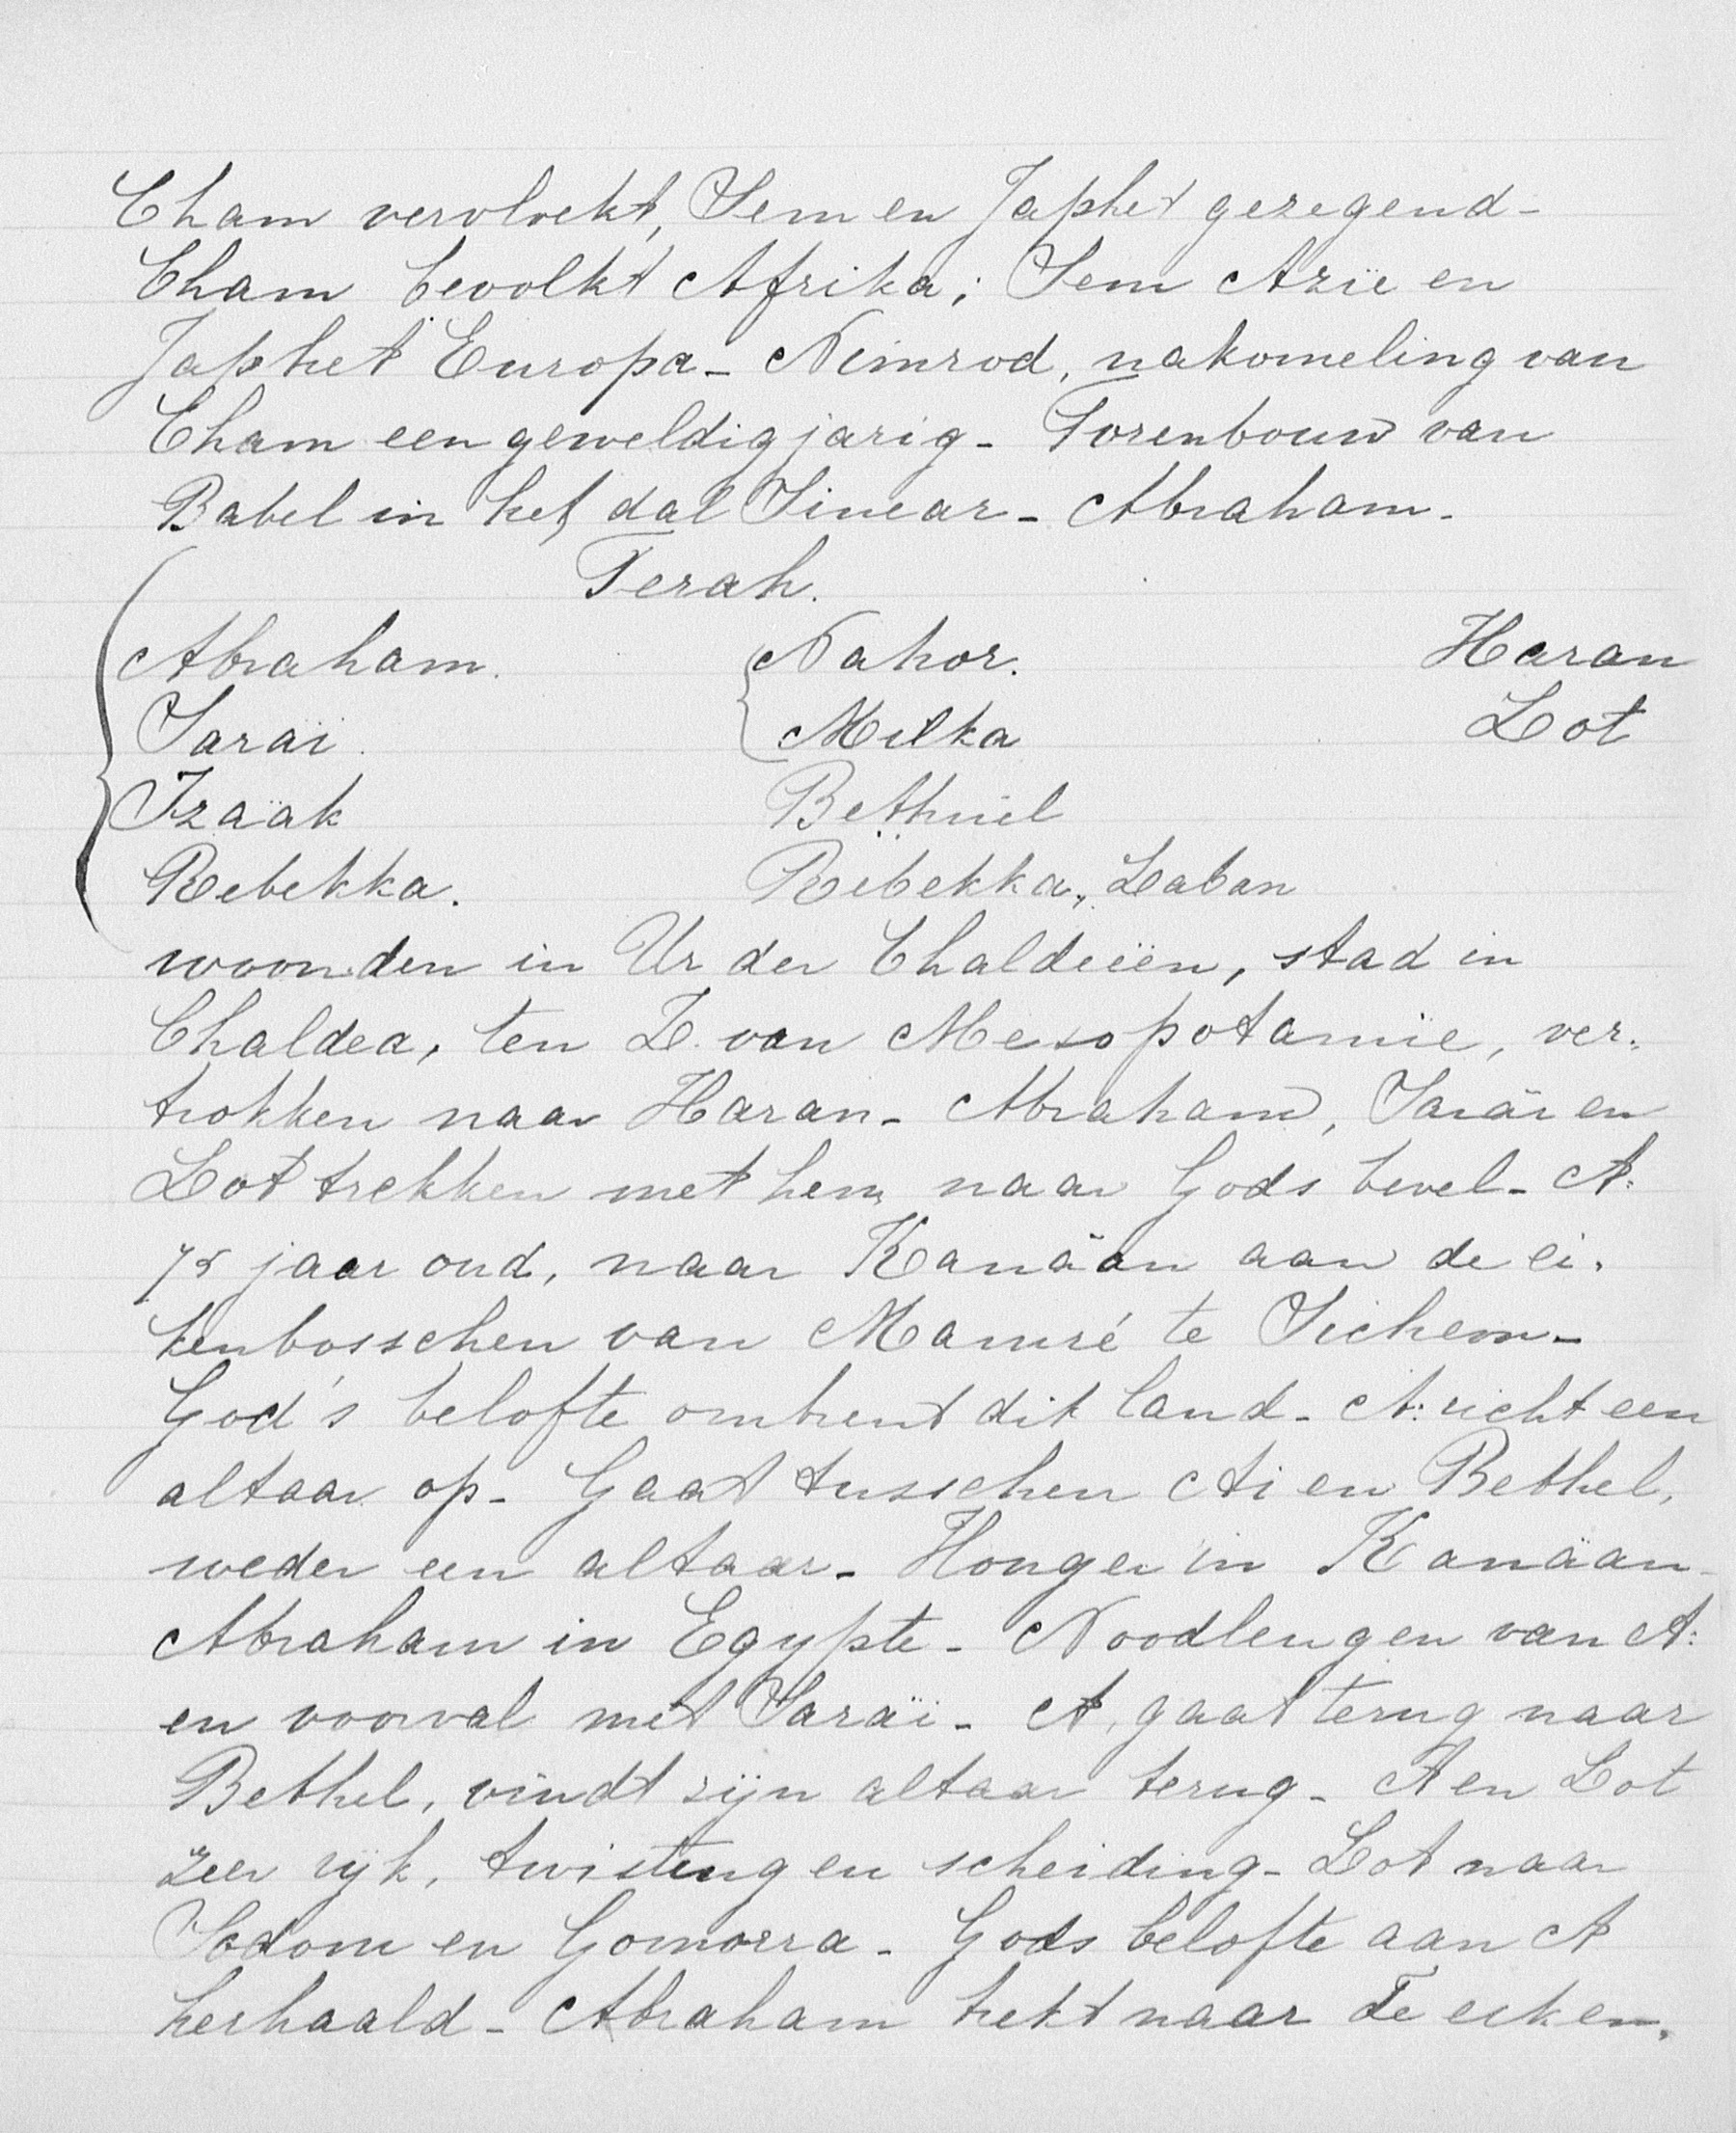 Cham vervloekt, Sem en Japhet gezegend -
Cham bevolkt Afrika; Sem Azië en
Japhet Europa - Nimrod, nakomeling van
Cham een geweldig jarig - Torenbouw van
Babel in het dal Sinear - Abraham -
Terah.
Abraham. Nahor. Haran
Saraï. Milka Lot
Izaäk Bethuël
Rebekka. Rebekka, Laban
woonden in Ur der Chaldeiën, stad in
Chaldea, ten Z. van Mesopotamië, ver-
trokken naar Haran - Abraham, Saraï en
Lot trekken met hem naar Gods bevel - A:
75 jaar oud, naar Kanäan aan de ei-
kenbosschen van Mamré te Sichem -
God's belofte omtrent dit land - A: richt een
altaar op - Gaat tusschen Ai en Bethel,
weder een altaar - Honger in Kanäan -
Abraham in Egypte - Noodleugen van A:
en voorval met Saraï - A. gaat terug naar
Bethel, vindt zijn altaar terug - A en Lot
zeer rijk, twisting en scheiding - Lot naar
Sodom en Gomorra - Gods belofte aan A
herhaald - Abraham trekt naar de eiken-